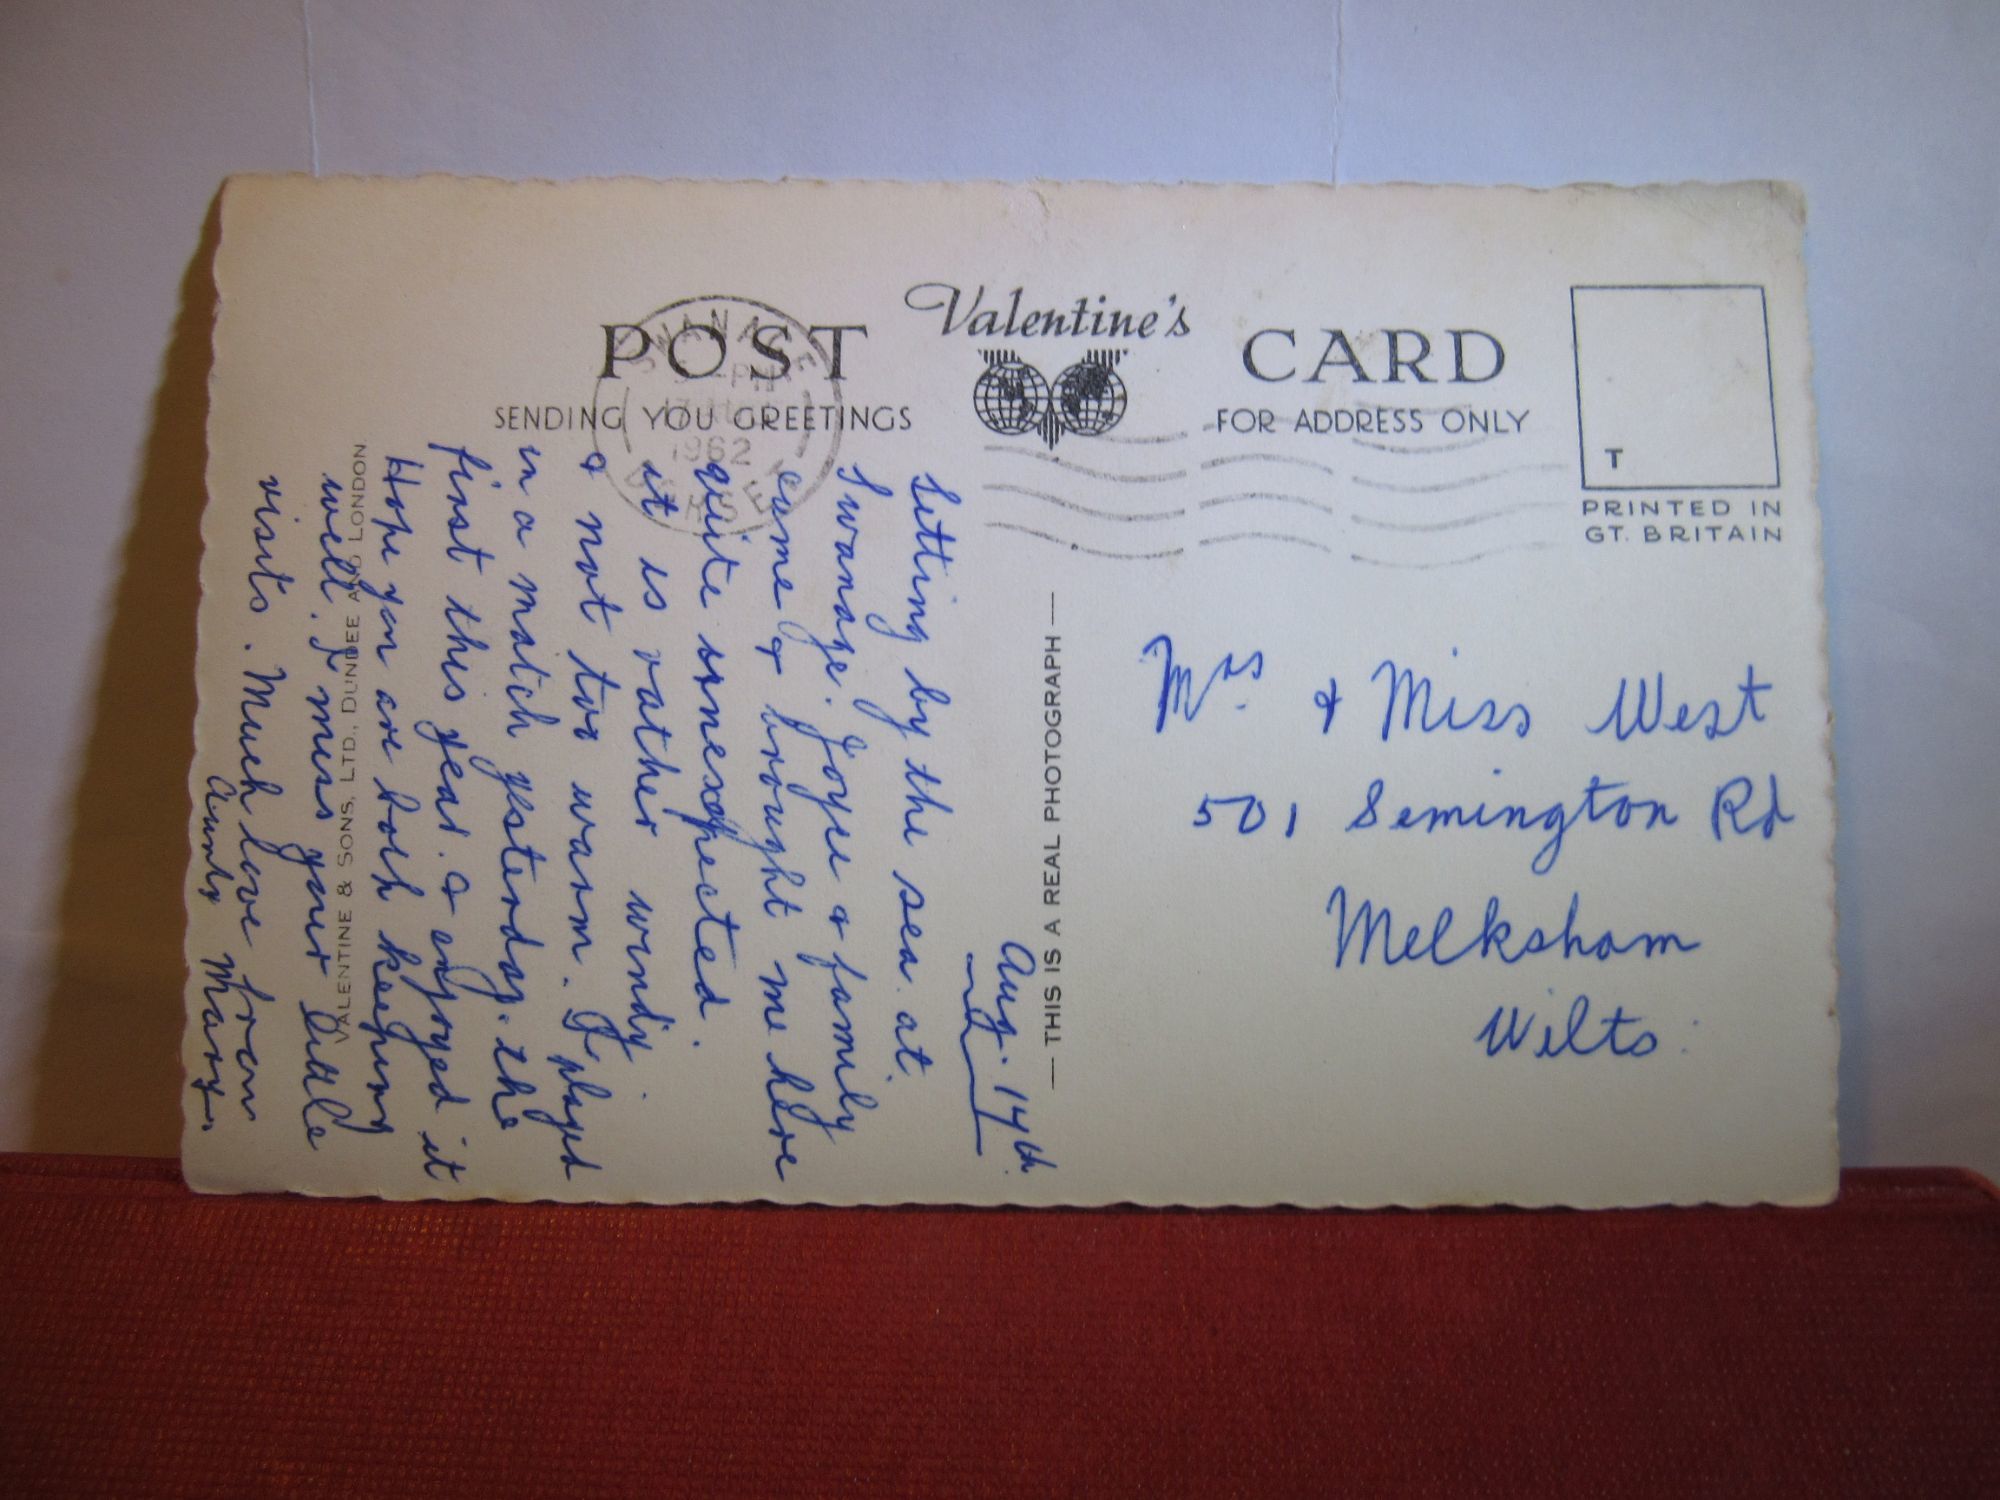 Valentine's
POST CARD
SENDING YOU GREETINGS
FOR ADDRESS ONLY
T
PRINTED IN
GT. BRITAIN
SWANAGE
PM
1962
DORSET
Aug. 17th
Sitting by the sea at
Swanage. Joyce & family
came & brought me here
quite unexpected.
it is rather windy
& not too warm. I played
in a match yesterday. the
first this year. & enjoyed it
Hope you are both keeping
well. I miss your little
visits. Much love from
Aunty Mary
— THIS IS A REAL PHOTOGRAPH —
VALENTINE & SONS, LTD., DUNDEE AND LONDON
Mrs. & Miss West
501 Semington Rd
Melksham
Wilts.